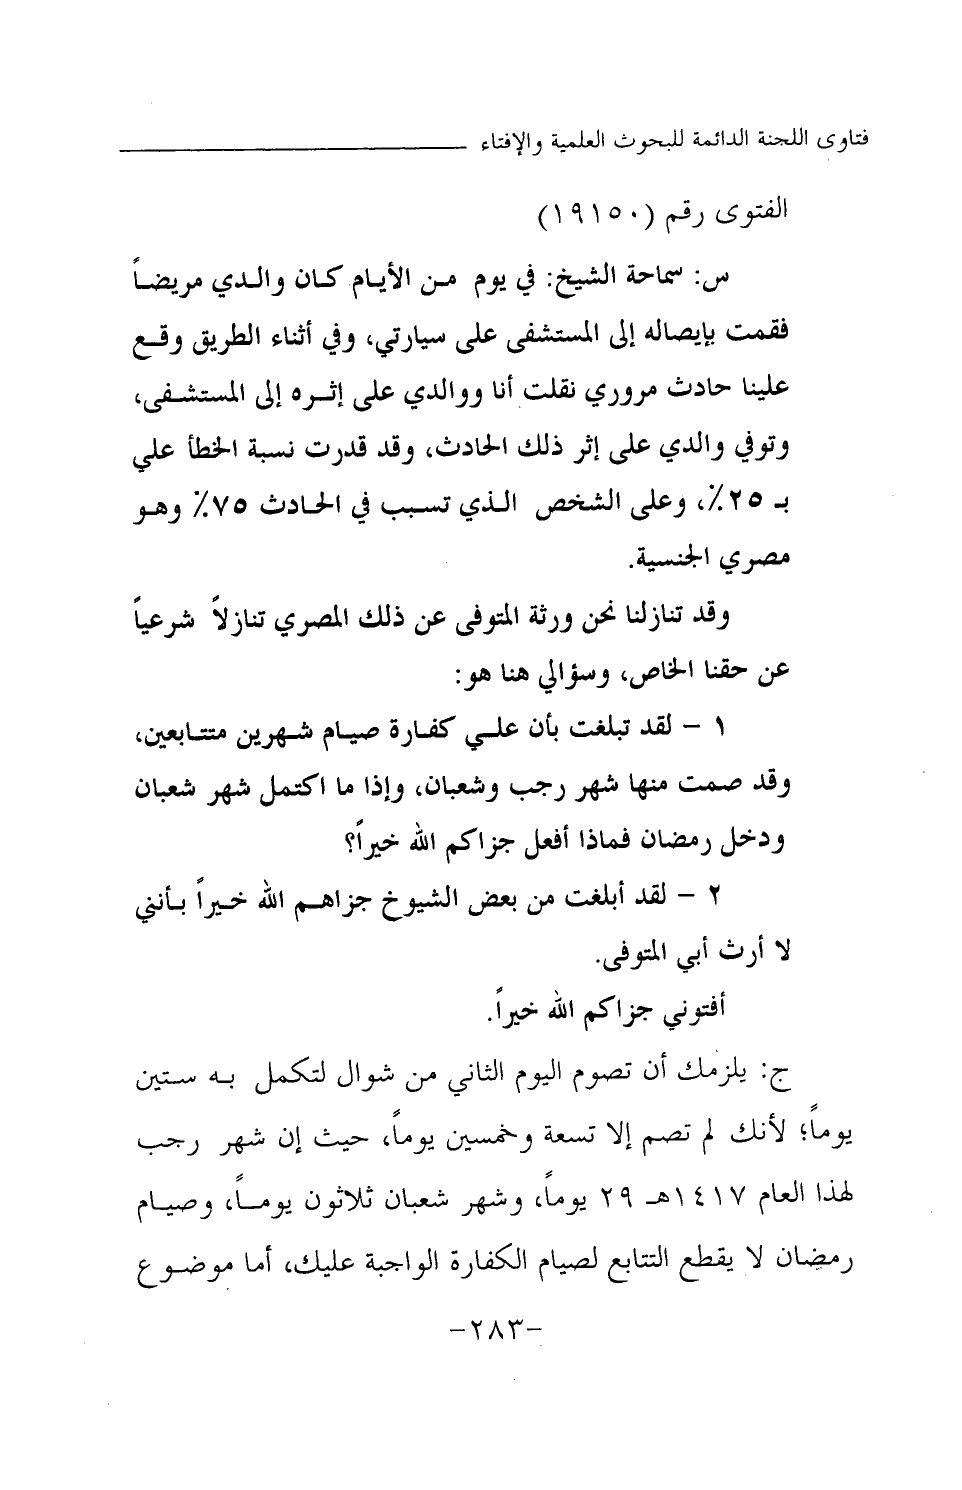 فتاوى اللجنة الدائمة للبحوث العلمية والإفتاء
الفتوى رقم (١٩١٥٠)
س: سماحة الشيخ: في يوم من الأيام كان والدي مريضاً
فقمت بإيصاله إلى المستشفى على سيارتي، وفي أثناء الطريق وقع
علينا حادث مروري نقلت أنا ووالدي على إثره إلى المستشفى،
وتوفي والدي على إثر ذلك الحادث، وقد قدرت نسبة الخطأ علي
بـ ٢٥٪، وعلى الشخص الذي تسبب في الحادث ٧٥٪ وهو
مصري الجنسية.
وقد تنازلنا نحن ورثة المتوفى عن ذلك المصري تنازلاً شرعياً
عن حقنا الخاص، وسؤالي هنا هو:
١ - لقد تبلغت بأن علي كفارة صيام شهرين متتابعين،
وقد صمت منها شهر رجب وشعبان، وإذا ما اكتمل شهر شعبان
ودخل رمضان فماذا أفعل جزاكم الله خيراً؟
٢ - لقد أبلغت من بعض الشيوخ جزاهم الله خيراً بأنني
لا أرث أبي المتوفى.
أفتوني جزاكم الله خيراً.
ج: يلزمك أن تصوم اليوم الثاني من شوال لتكمل به ستين
يوماً؛ لأنك لم تصم إلا تسعة وخمسين يوماً، حيث إن شهر رجب
لهذا العام ١٤١٧هـ ٢٩ يوماً، وشهر شعبان ثلاثون يوماً، وصيام
رمضان لا يقطع التتابع لصيام الكفارة الواجبة عليك، أما موضوع
-٢٨٣-